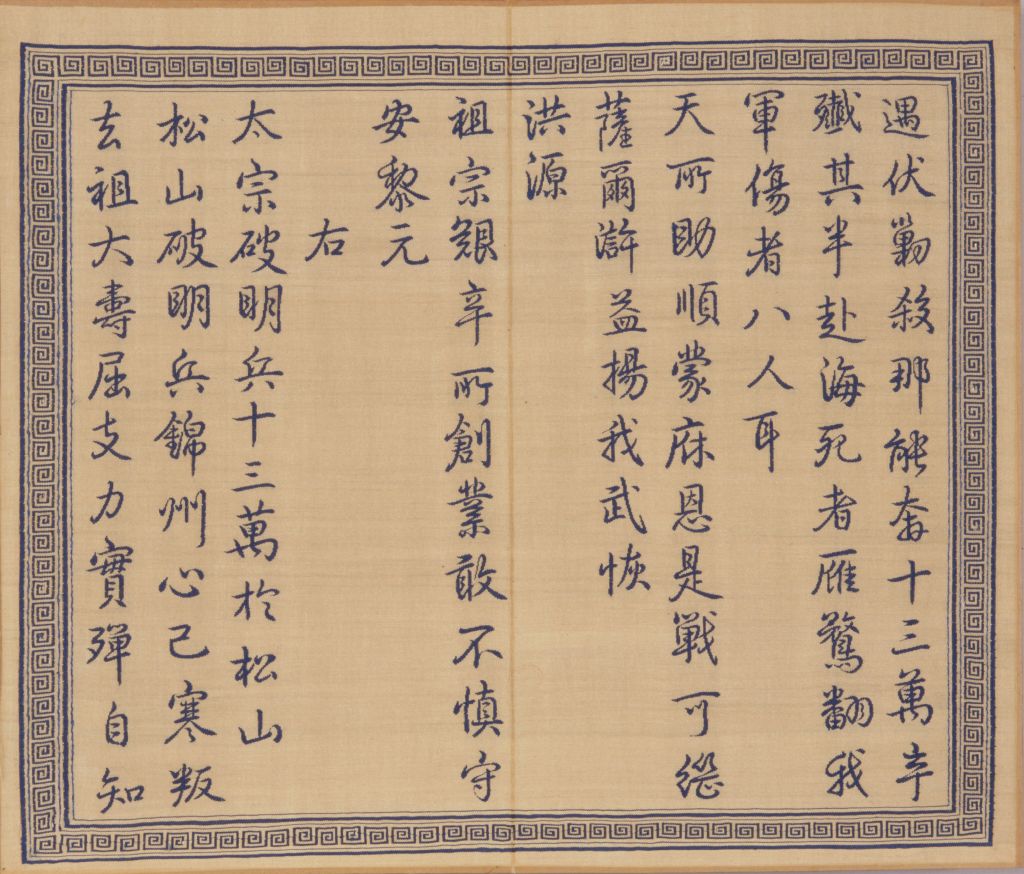 遇伏勦殺那能奔十三萬卒
殲其半赴海死者雁鶩翻我
軍傷者八人耳
天所助順蒙庥恩是戰可繼
薩爾滸益揚我武恢
洪源
祖宗艱辛所創業敢不慎守
安黎元
右
太宗破明兵十三萬於松山
松山破明兵錦州心已寒叛
去祖大壽屈支力實殫自知